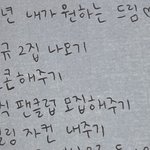 년 내가 원하는 드림♡
규 2집 나오기
콘해주기
식 팬클럽 모집해주기
링 자컨 내주기